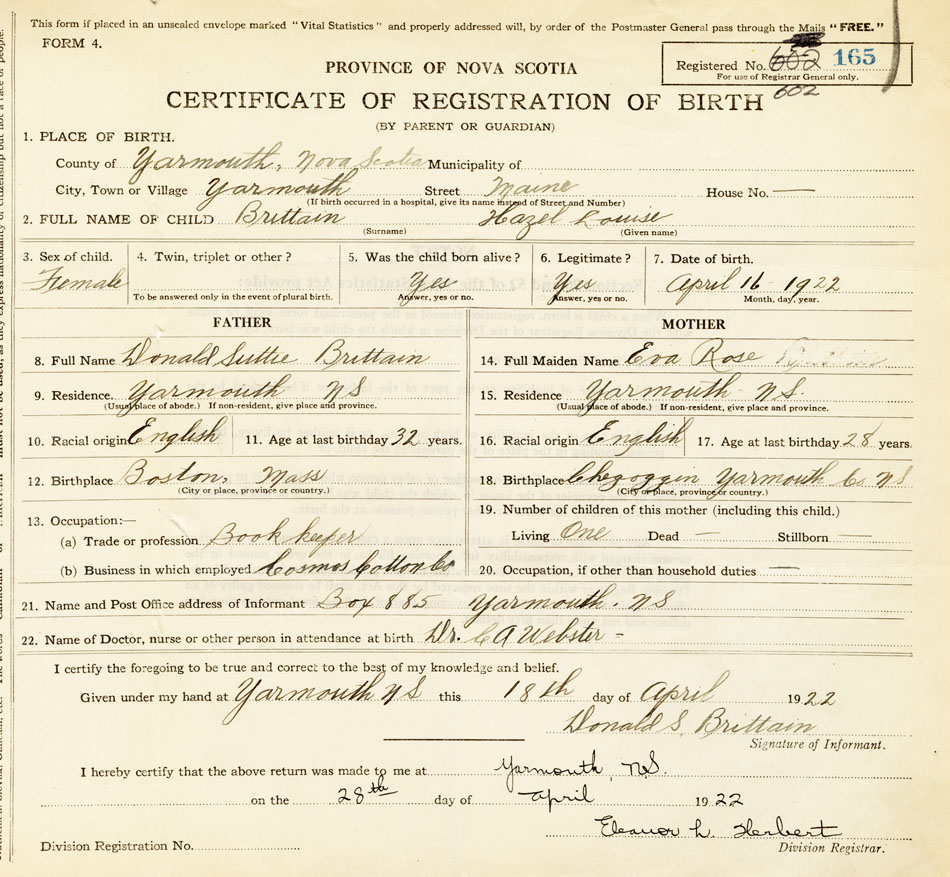 This form if placed in an unsealed envelope marked "Vital Statistics" and properly addressed will, by order of the Postmaster General pass through the Mails "FREE."
FORM 4.
Registered No. 602 165
For use of Registrar General only.
602
PROVINCE OF NOVA SCOTIA
CERTIFICATE OF REGISTRATION OF BIRTH
(BY PARENT OR GUARDIAN)
1. PLACE OF BIRTH.
County of Yarmouth, Nova Scotia Municipality of
City, Town or Village Yarmouth Street Maine House No. —
(If birth occurred in a hospital, give its name instead of Street and Number)
2. FULL NAME OF CHILD Brittain Hazel Louise
(Surname) (Given name)
3. Sex of child. 4. Twin, triplet or other? 5. Was the child born alive? 6. Legitimate? 7. Date of birth.
Female Yes Yes April 16 - 1922
To be answered only in the event of plural birth. Answer, yes or no. Answer, yes or no. Month, day, year.
FATHER MOTHER
8. Full Name Donald Suttie Brittain 14. Full Maiden Name Eva Rose
9. Residence. Yarmouth NS 15. Residence Yarmouth - NS.
(Usual place of abode.) If non-resident, give place and province. (Usual place of abode.) If non-resident, give place and province.
10. Racial origin English 11. Age at last birthday 32 years. 16. Racial origin English 17. Age at last birthday 28 years.
12. Birthplace Boston, Mass 18. Birthplace Chegoggin Yarmouth Co NS
(City or place, province or country.) (City or place, province or country.)
13. Occupation:— 19. Number of children of this mother (including this child.)
(a) Trade or profession Book keeper Living One Dead — Stillborn —
(b) Business in which employed Cosmos Cotton Co 20. Occupation, if other than household duties —
21. Name and Post Office address of Informant Box 885 Yarmouth. NS
22. Name of Doctor, nurse or other person in attendance at birth Dr. C A Webster -
I certify the foregoing to be true and correct to the best of my knowledge and belief.
Given under my hand at Yarmouth NS this 18th day of April 1922
Donald S. Brittain
Signature of Informant.
I hereby certify that the above return was made to me at Yarmouth, N.S.
on the 28th day of April 1922
Eleanor L. Herbert
Division Registration No. Division Registrar.